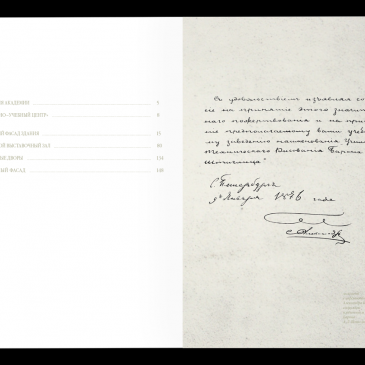 Я АКАДЕМИИ 5
НО-УЧЕБНЫЙ ЦЕНТР» 9
Й ФАСАД ЗДАНИЯ 15
ОЙ ВЫСТАВОЧНЫЙ ЗАЛ
ЫЕ ДВОРЫ 134
НЫЙ ФАСАД
Съ удовольствiемъ изъявляя со
не на принятiе этого значит
наго пожертвованiя и на при
нiе предполагаемому вами учеб
му заведенiю наименованiя Учил
техническаго Рисованiя Барона
Штиглица"
С. Петербургъ
9го Января 1876 года